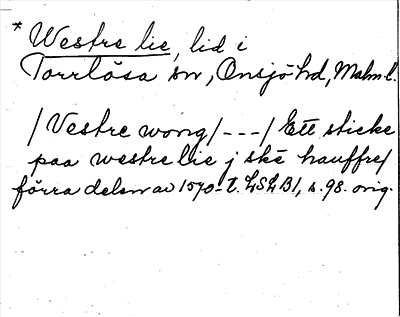 * Westre lie, lid i
Torrlösa sn, Onsjö hd, Malm. l.
/Vestre wong/---/Ett sticke
paa westre lie j skè hauffre/
förra delen av 1570-t. LSLB1, s. 98. orig.